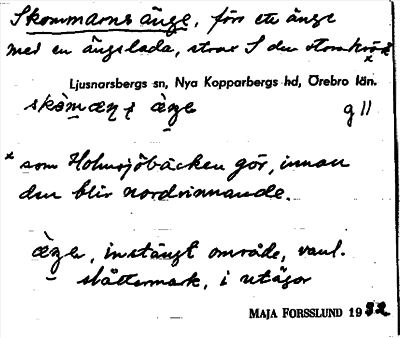 Skommarns änge, förr ett änge
med en ängslada, strax S du stora krök
x
Ljusnarsbergs sn, Nya Kopparbergs hd, Örebro län.
g 11
x som Holmsjöbäcken gör, innan
den blir nordrinnande.
inständt område, vanl.
slåttermark, i utägor
MAJA FORSSLUND 19 32